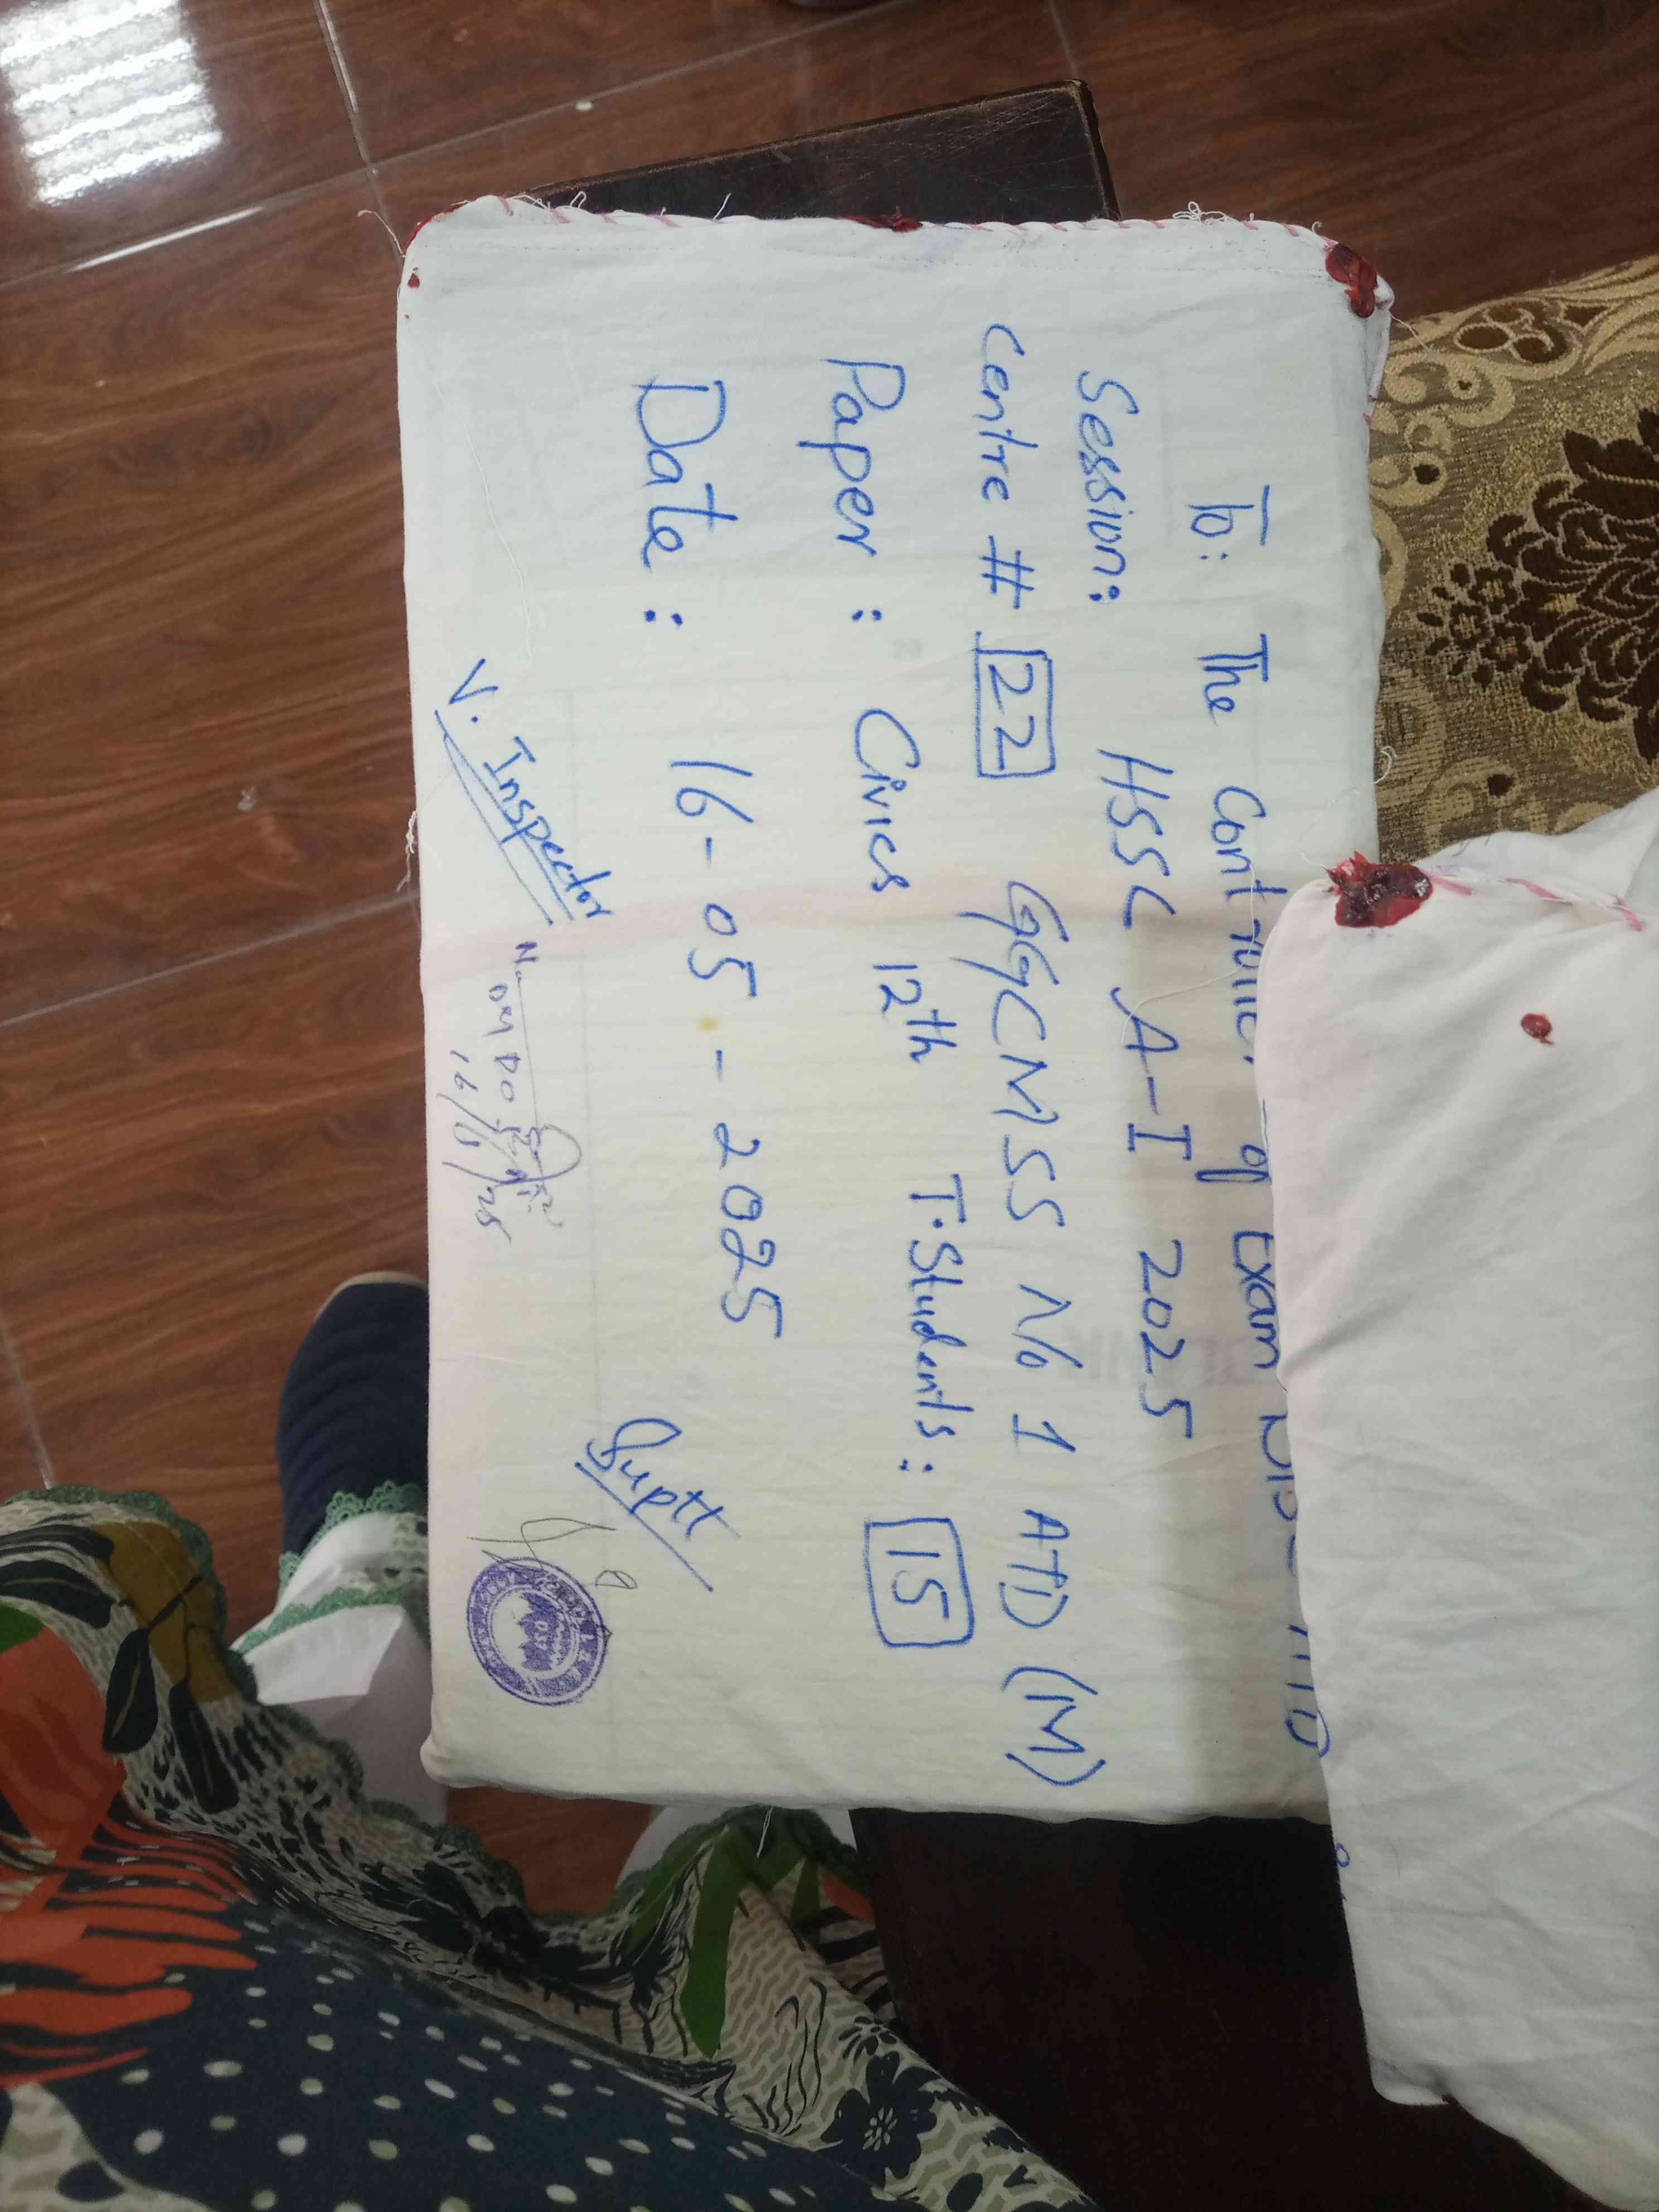 To: The Controller of Exam
Session: HSSC A-I 2025
Centre # 22 GGCMSS No 1 ATD (M)
Paper: Civics 12th T.Students: 15
Date: 16-05-2025
V. Inspector
Suptt